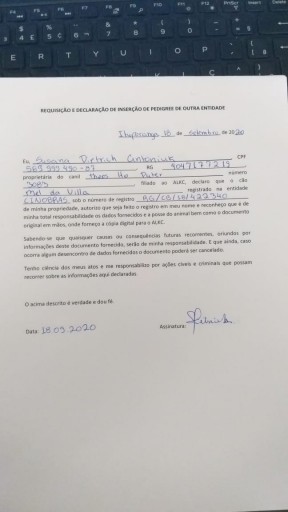 REQUISIÇÃO E DECLARAÇÃO DE INSERÇÃO DE PEDIGREE DE OUTRA ENTIDADE
18 de Setembro de 2020
Eu, Susana Dietrich CPF
RG
proprietário do canil número
3085 filiado ao ALKC, declaro que o cão
Mel da Villa registrado na entidade
CINOBRAS, sob o número de registro
de minha propriedade, autorizo que seja feito o registro em meu nome e reconheço que é de
minha total responsabilidade os dados fornecidos e a posse do animal bem como o documento
original em mãos, onde forneço a cópia digital para o ALKC.
Sabendo-se que quaisquer causas ou consequências futuras recorrentes, oriundos por
informações deste documento fornecido, serão de minha responsabilidade. E que ainda, caso
ocorra algum desencontro de dados fornecidos o documento poderá ser cancelado.
Tenho ciência dos meus atos e me responsabilizo por ações civeis e criminais que possam
recorrer sobre as informações aqui declaradas.
O acima descrito é verdade e dou fé.
Data: 18.09.2020 Assinatura: